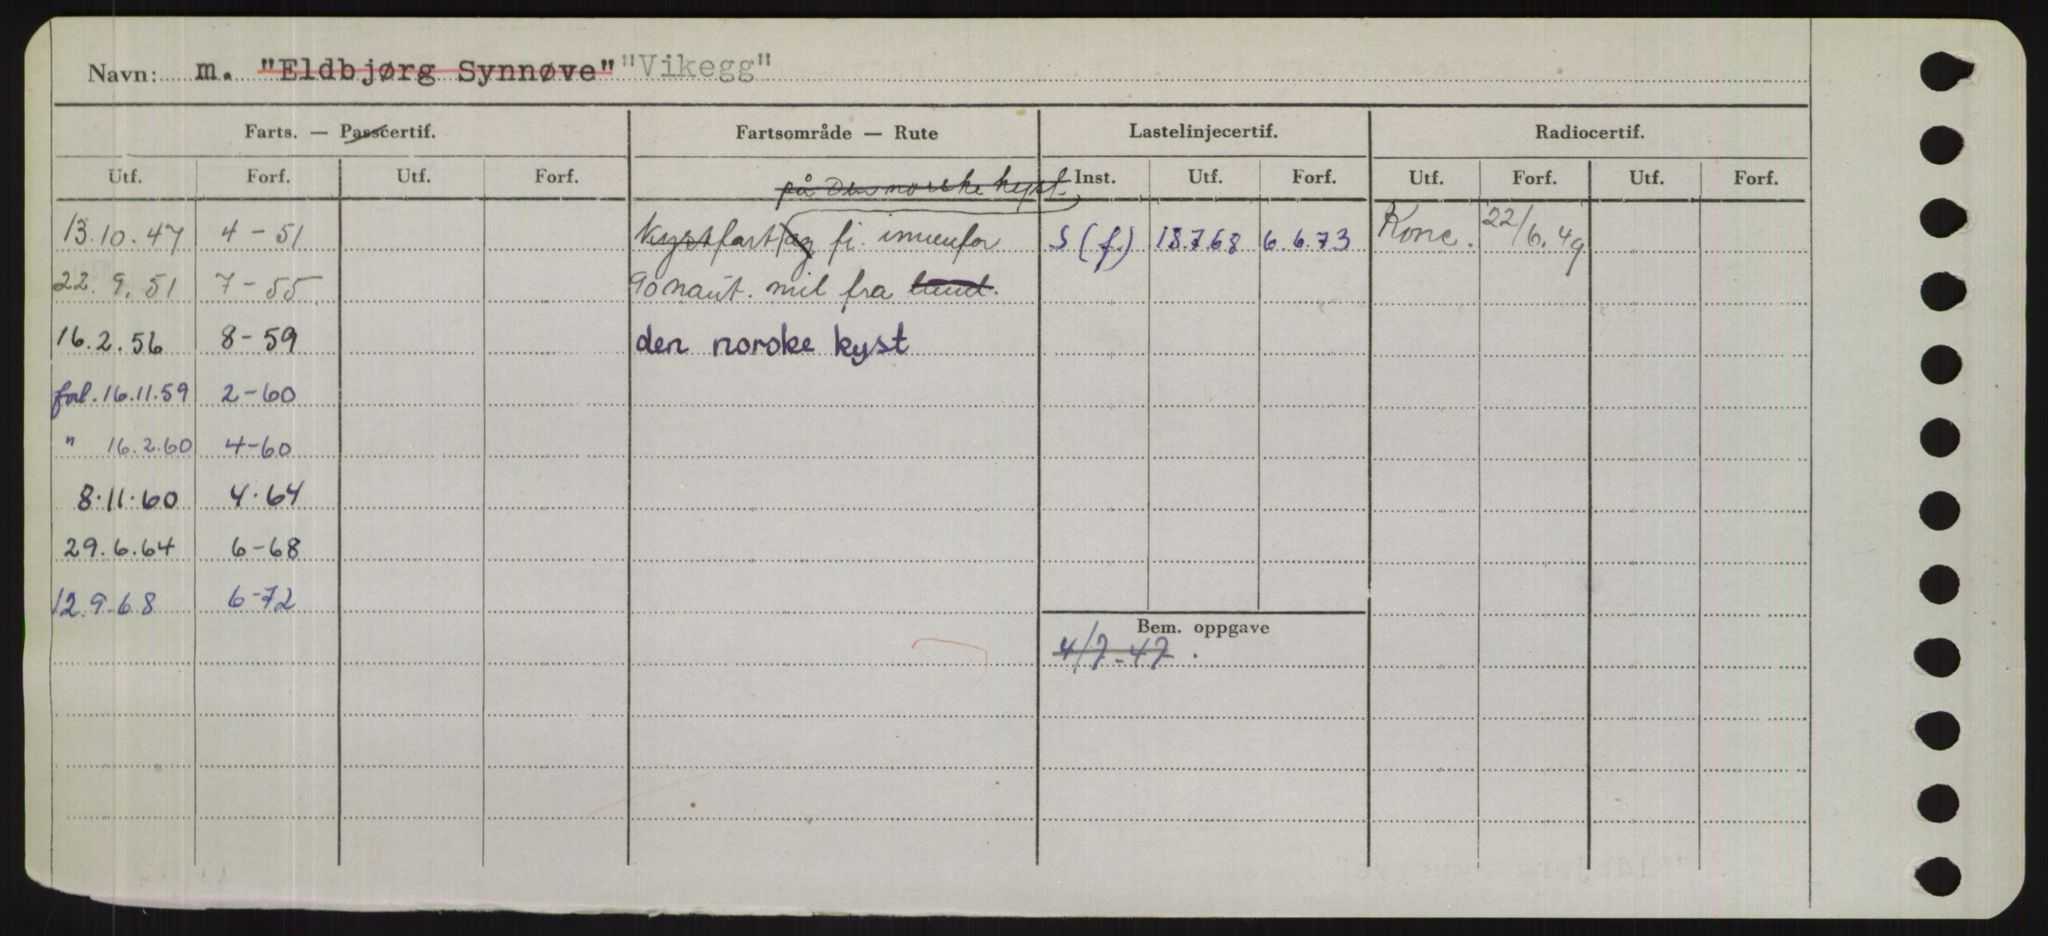 Navn: m. "Eldbjørg Synnøve" "Vikegg"
Farts. — Passcertif. Fartsområde — Rute Lastelinjecertif. Radiocertif.
Utf. Forf. Utf. Forf. Inst. Utf. Forf. Utf. Forf. Utf. Forf.
på den norske kyst.
13.10.47 4-51 Kystfart og fi. innenfor S (f.) 18.7.68 6.6.73 Konc. 22/6.49
22.9.51 7-55 90 naut. mil fra land.
16.2.56 8-59 den norske kyst
forl. 16.11.59 2-60
" 16.2.60 4-60
8.11.60 4.64
29.6.64 6-68
12.9.68 6-72
Bem. oppgave
4/7-47.